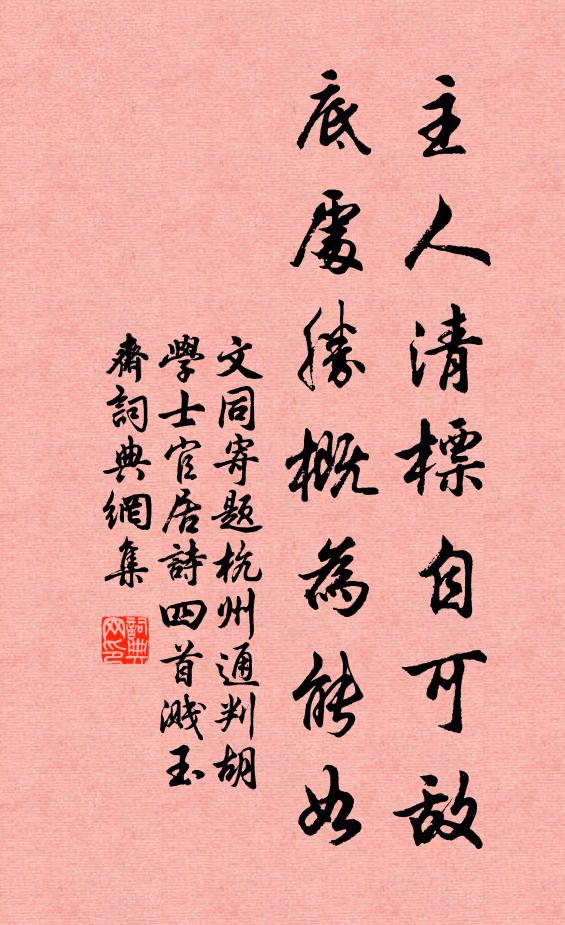 主人清標自可敵
底處勝概為能如
文同寄題杭州通判胡
學士官居詩四首濺玉
齋詞典網集
詞典網印